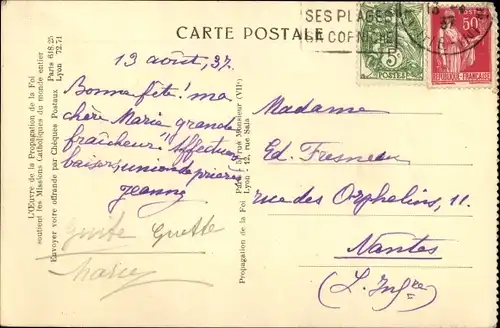 SES PLAGES
SA CORNICHE
13
37
50c
POSTES
REPUBLIQUE FRANCAISE
CARTE POSTALE
13 août, 37.
Bonne fête! ma
chère Maria grande
fraîcheur! Affectueux
baisers, union de prières
Jeanne
Guste Guette
Madame
Ed. Fresneau
rue des Orphelins, 11.
Nantes
(L. Infre)
L'Œuvre de la Propagation de la Foi
soutient les Missions Catholiques du monde entier
Envoyer votre offrande par Chèques Postaux Paris 618.25
Lyon 72.71
Propagation de la Foi Paris - 5, rue Monsieur (VIIe)
Lyon - 12, rue Sala